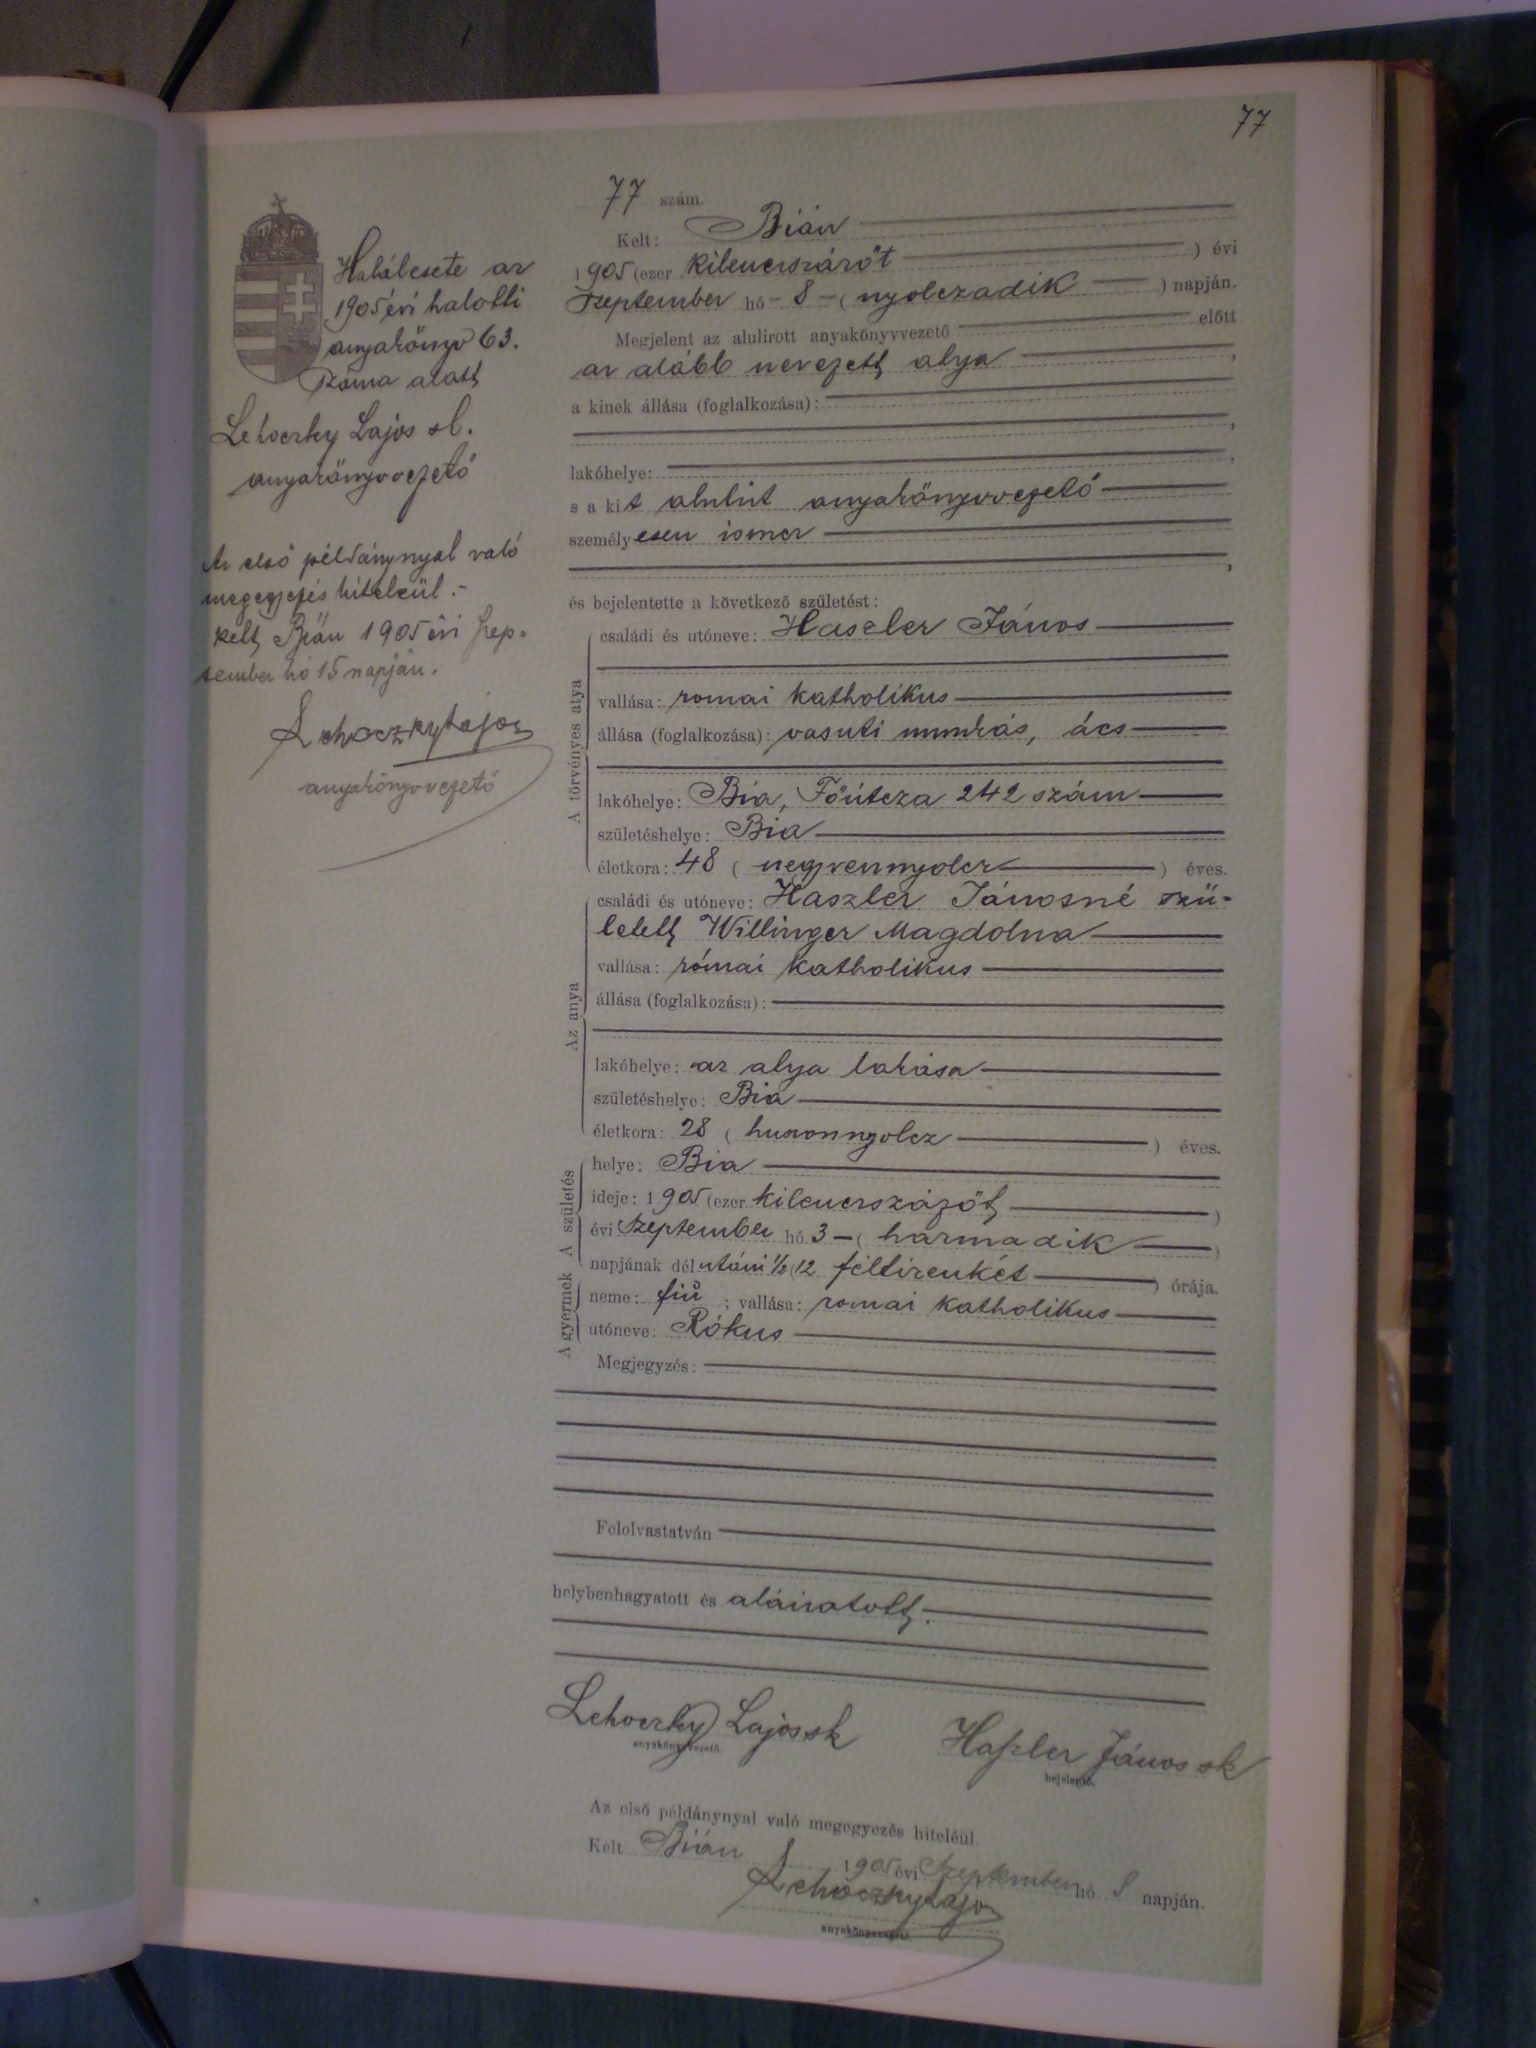 77
77 szám.
Kelt: Bián
1905 (ezer kilencszázöt ) évi
Szeptember hó - 8 - ( nyolczadik ) napján.
Megjelent az alulirott anyakönyvvezető előtt
az alább nevezett atya ,
a kinek állása (foglalkozása):
,
lakóhelye: ,
s a kit alulirt anyakönyvvezető
személyesen ismer
,
és bejelentette a következő születést:
A törvényes atya
családi és utóneve: Haszler János
vallása: romai katholikus
állása (foglalkozása): vasuti munkás, ács
lakóhelye: Bia, Főútcza 242 szám
születéshelye: Bia
életkora: 48 ( negyvennyolcz ) éves.
Az anya
családi és utóneve: Haszler Jánosné szü-
letett Willinger Magdolna
vallása: római katholikus
állása (foglalkozása):
lakóhelye: az atya lakása
születéshelye: Bia
életkora: 28 ( huszonnyolcz ) éves.
A születés
helye: Bia
ideje: 1905 (ezer kilencszázöt )
évi Szeptember hó 3 - ( harmadik )
napjának délutáni ½ (12 féltizenkét ) órája.
A gyermek
neme: fiú ; vallása: romai katholikus
utóneve: Rókus
Megjegyzés:
Felolvastatván
helybenhagyatott és aláiratott.
Lehoczky Lajos sk Haszler János sk
anyakönyvvezető. bejelentő.
Az első példánynyal való megegyezés hiteléül.
Kelt Bián 1905 évi Szeptember hó 8 napján.
Lehoczky Lajos
anyakönyvvezető.
Halálesete az
1905 évi halotti
anyakönyv 63.
szám alatt
Lehoczky Lajos sk.
anyakönyvvezető
Az első példánynyal való
megegyezés hiteleül.-
kelt Bián 1905 évi Szep-
tember hó 15 napján.
Lehoczky Lajos
anyakönyvvezető